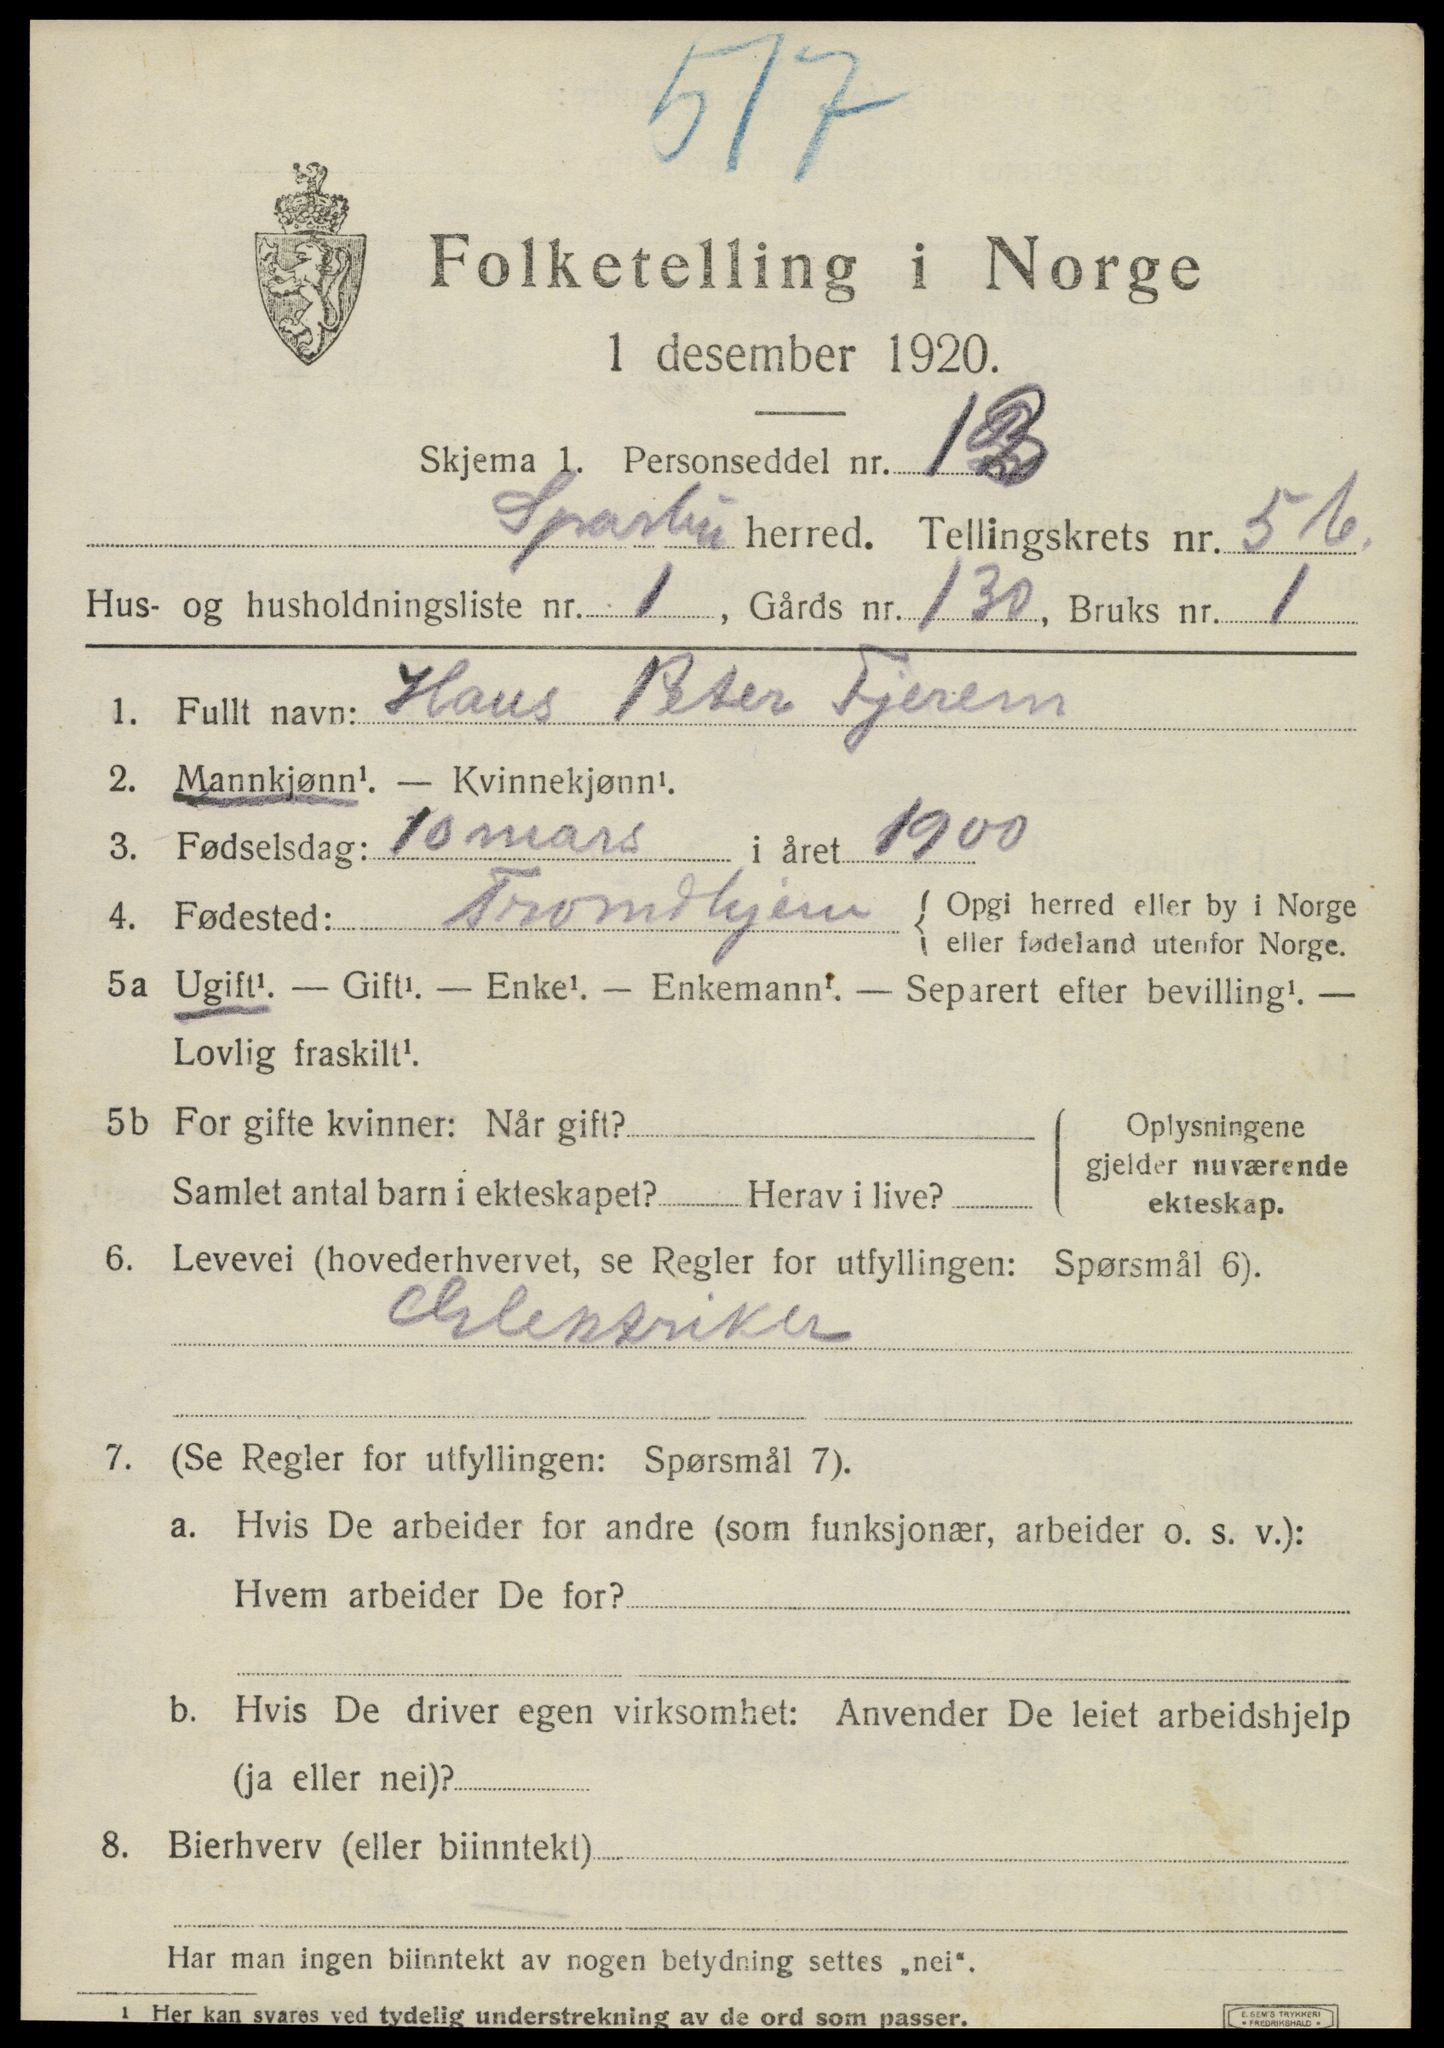 517
Folketelling i Norge
1 desember 1920.
Skjema 1. Personseddel nr. 1
Sparbu herred. Tellingskrets nr. 5 b.
Hus- og husholdningsliste nr. 1, Gårds nr. 130, Bruks nr. 1
1. Fullt navn: Hans Peter Fjerem
2. Mannkjønn¹. — Kvinnekjønn¹.
3. Fødselsdag: 10 mars i året 1900
4. Fødested: Tromdhjem { Opgi herred eller by i Norge
eller fødeland utenfor Norge.
5a Ugift¹. — Gift¹. — Enke¹. — Enkemann¹. — Separert efter bevilling¹. —
Lovlig fraskilt¹.
5b For gifte kvinner: Når gift?
Samlet antal barn i ekteskapet? Herav i live?
Oplysningene
gjelder nuværende
ekteskap.
6. Levevei (hovederhvervet, se Regler for utfyllingen: Spørsmål 6).
Elektriker
7. (Se Regler for utfyllingen: Spørsmål 7).
a. Hvis De arbeider for andre (som funksjonær, arbeider o. s. v.):
Hvem arbeider De for?
b. Hvis De driver egen virksomhet: Anvender De leiet arbeidshjelp
(ja eller nei)?
8. Bierhverv (eller biinntekt)
Har man ingen biinntekt av nogen betydning settes „nei“.
1 Her kan svares ved tydelig understrekning av de ord som passer.
E. SEM'S TRYKKERI
• FREDRIKSHALD •